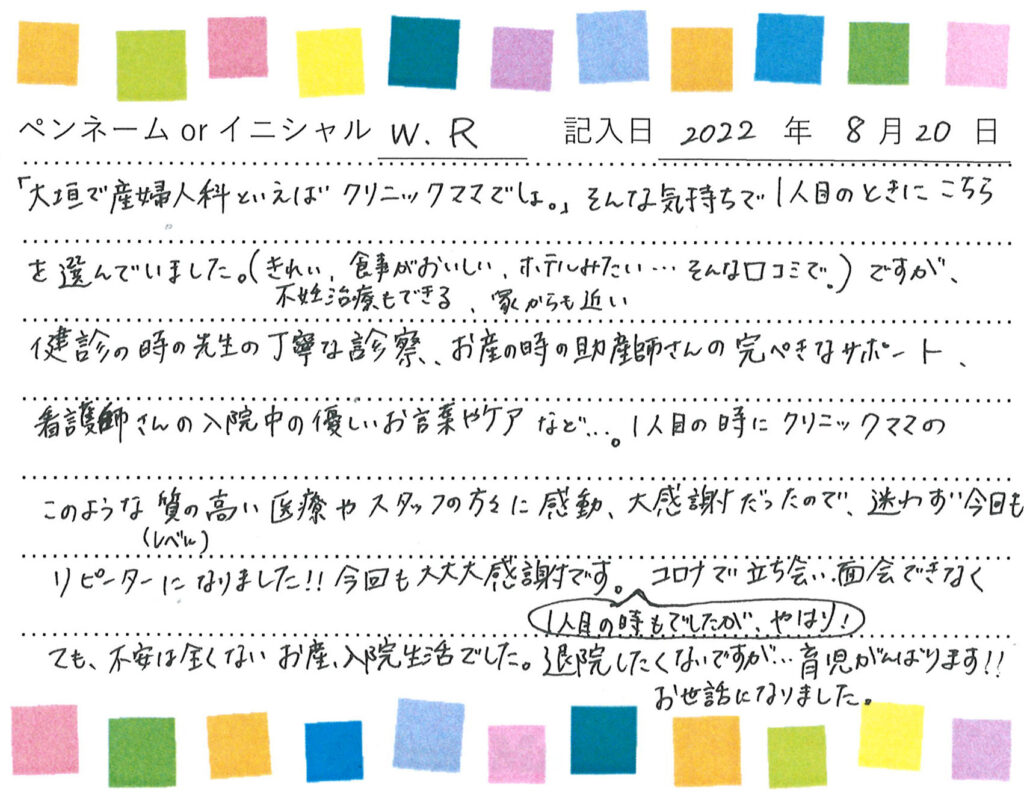 ペンネーム or イニシャル W. R 記入日 2022 年 8 月 20 日
「大垣で産婦人科といえば クリニックママでしょ。」 そんな気持ちで 1人目のときに こちら
を 選んでいました。(きれい、食事がおいしい、ホテルみたい…そんな口コミで。) ですが、
不妊治療もできる、家からも近い
健診の時の先生の丁寧な診察、お産の時の助産師さんの完ぺきなサポート、
看護師さんの入院中の優しいお言葉やケアなど…。1人目の時に クリニックママの
このような 質の高い 医療や スタッフの方々に 感動、大感謝だったので、迷わず今回も
(レベル)
リピーターになりました!! 今回も大大大感謝です。コロナで立ち会い、面会できなく
1人目の時もでしたが、やはり!
ても、不安は全くない お産、入院生活でした。退院したくないですが…育児がんばります!!
お世話になりました。